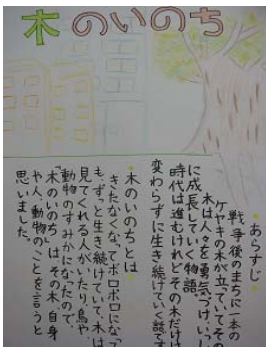 木のいのち
・あらすじ・
戦争後のまちに一本の
ケヤキの木が立っていて、その
木は人々を勇気づけ、いっしょ
に成長していく物語。
時代は進むけれどその木だけは
変わらずに生き続けていく話です。
・木のいのちとは・
きたなくなってボロボロになって
も、ずっと生き続けていて、木は
見てくれる人がいたり、鳥や
動物のすみかになったので、
「木のいのち」は、その木自身
や人、動物のことを言うと
思いました。